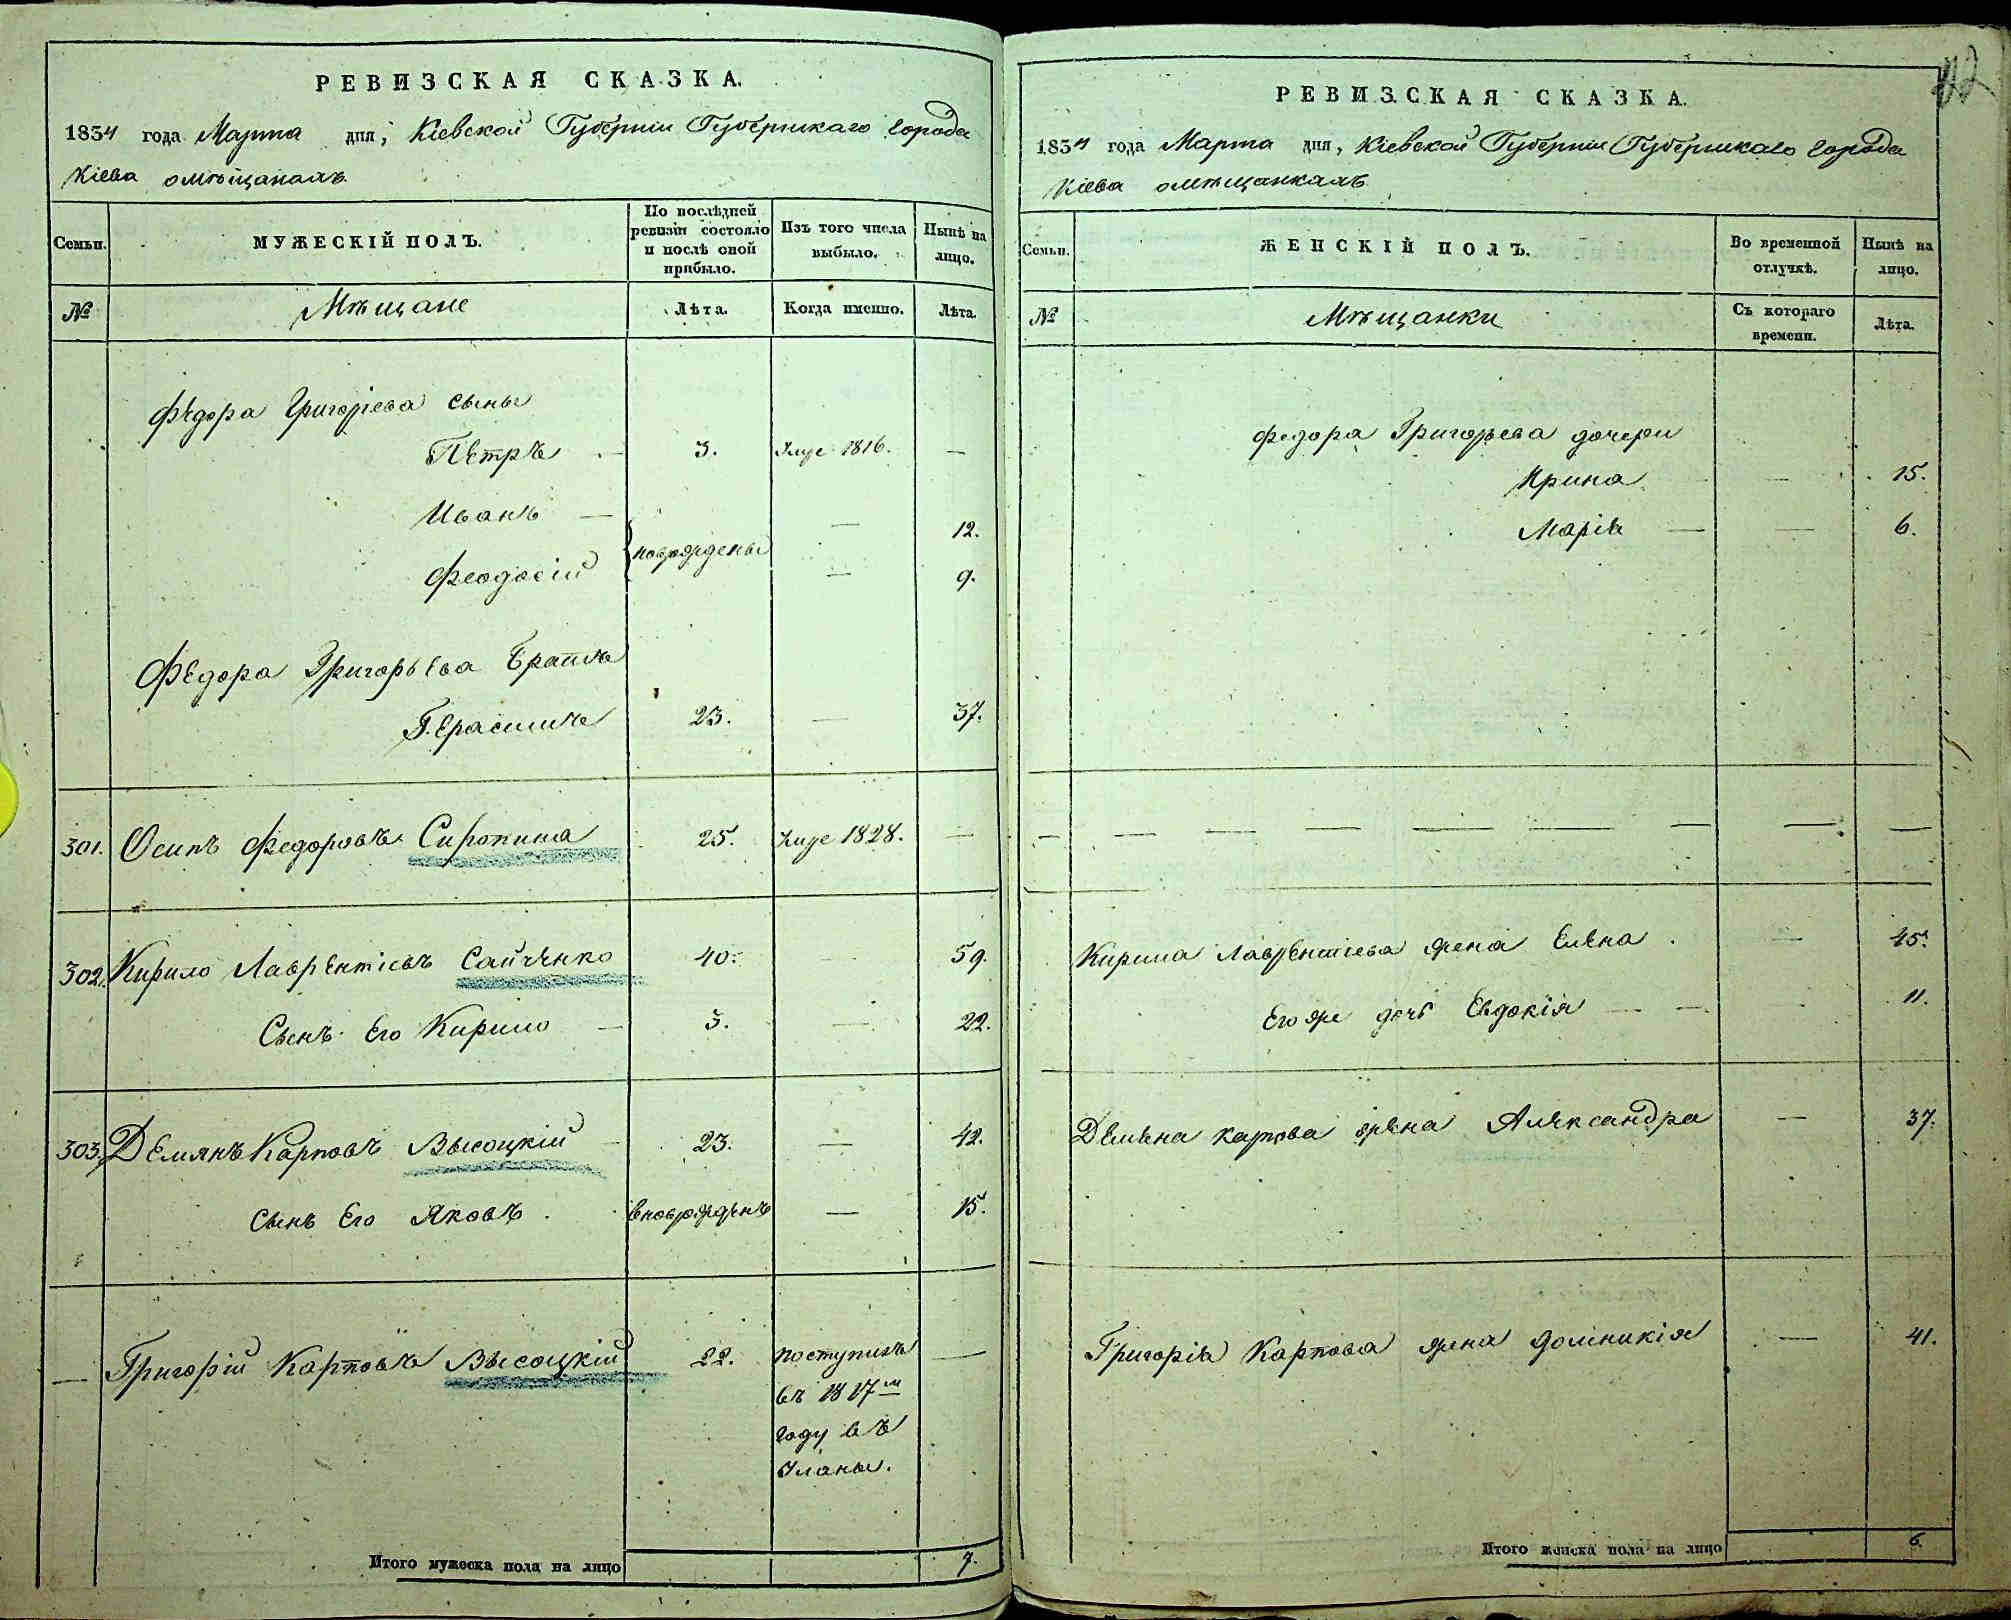 РЕВИЗСКАЯ СКАЗКА.
1834 года Марта дня, Кіевской Губерніи Губернскаго города
Кіева о мѣщанахъ
Семьи.
МУЖЕСКІЙ ПОЛЪ.
По послѣдней ревизіи состояло и послѣ оной прибыло.
Изъ того числа выбыло.
Нынѣ на лицо.
№
Мѣщане
Лѣта.
Когда именно.
Лѣта.
Федора Григорьева сыны
Петръ 3. Умре 1816. —
Иванъ — — 12.
новорождены
Феодосій — 9.
Федора Григорьева братъ
Герасимъ 23. — 37.
301. Осипъ Федоровъ Сиротина 25. Умре 1828. —
302. Кирило Лаврентіевъ Сайченко 40. — 59.
Сынъ Его Кирило — 3. — 22.
303. Демянъ Карповъ Высоцкій 23. — 42.
Сынъ Его Яковъ вноврожденъ — 15.
— Григорій Карповъ Высоцкій 22. поступилъ —
въ 1817м
году въ
Уланы.
Итого мужеска пола на лицо 7.
РЕВИЗСКАЯ СКАЗКА.
1834 года Марта дня, Кіевской Губерніи Губернскаго города
Кіева о мѣщанкахъ
Семьи.
ЖЕНСКІЙ ПОЛЪ.
Во временной отлучкѣ.
Нынѣ на лицо.
№
Мѣщанки
Съ котораго времени.
Лѣта.
Федора Григорьева дочери
Ирина — 15.
Марія — — 6.
— — — — — — — — —
Кирила Лаврентіева жена Елена — 45.
Его же дочь Евдокія — — 11.
Демяна Карпова жена Александра — 37.
Григорія Карпова жена Доминикія — 41.
Итого женска пола на лицо 6.